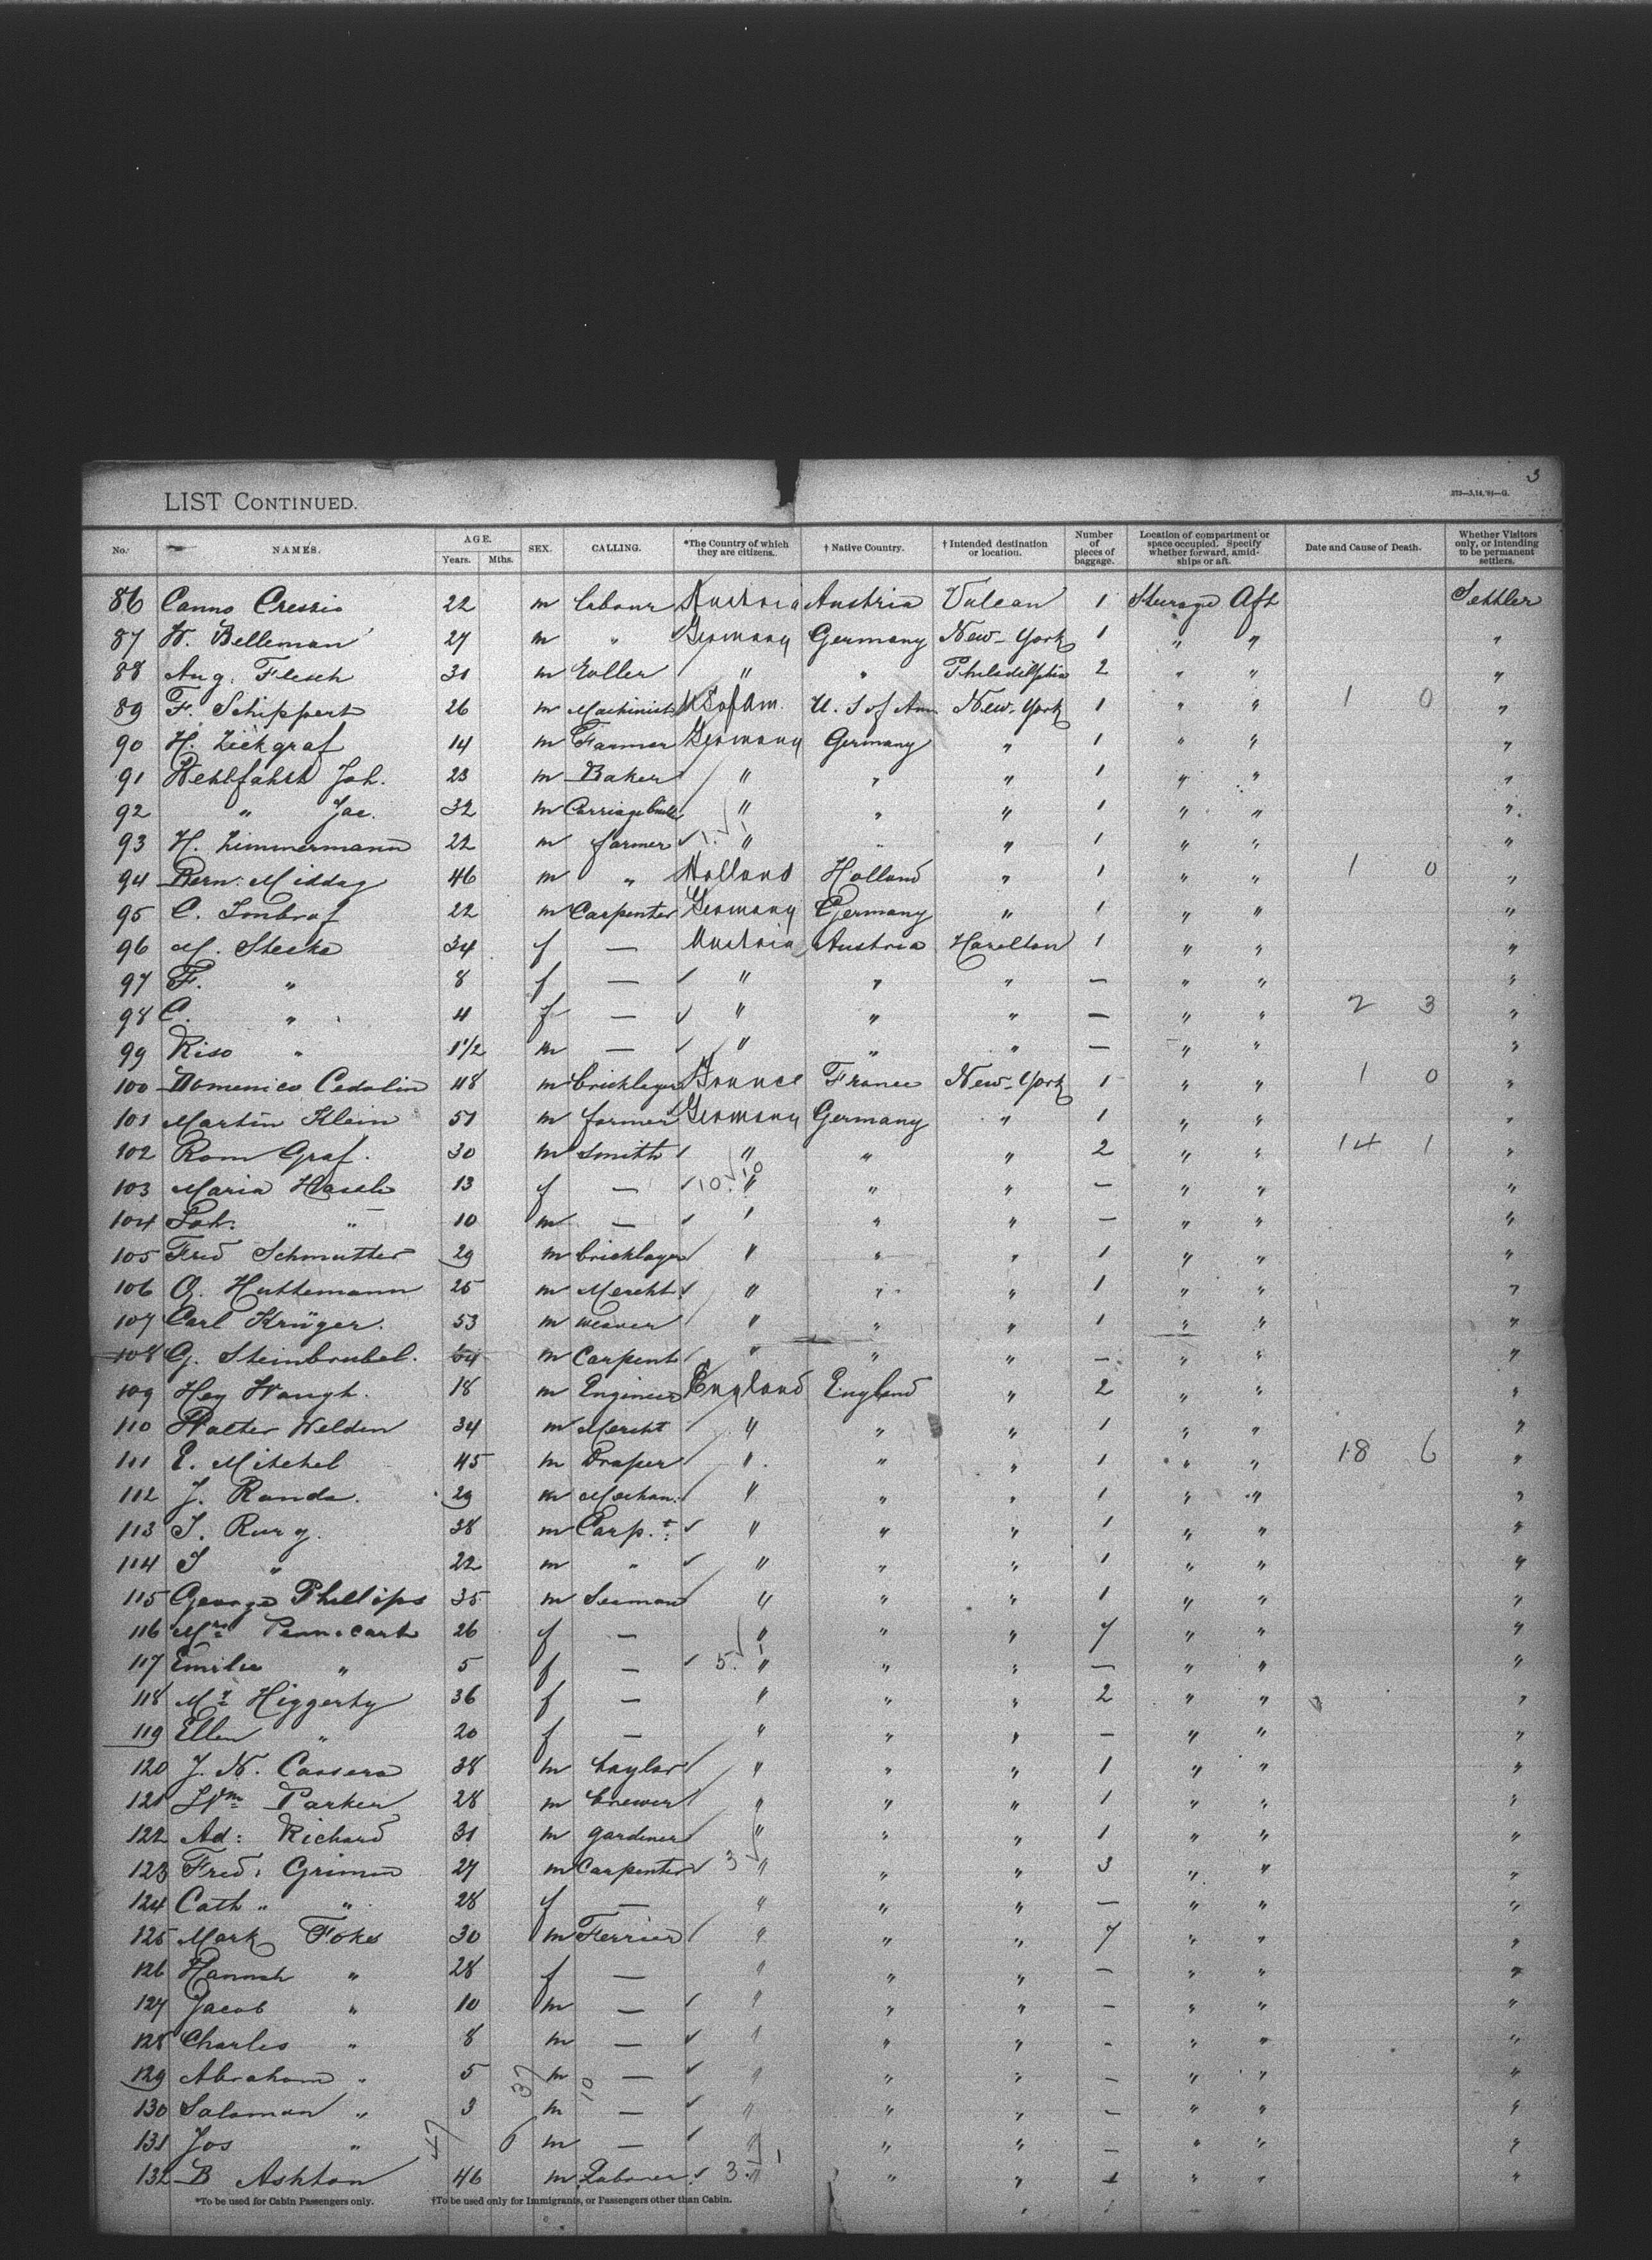 3
LIST CONTINUED.
373—3,14,'91—G.
No. NAMES. AGE. Years. Mths. SEX. CALLING. *The Country of which they are citizens. † Native Country. † Intended destination or location. Number of pieces of baggage. Location of compartment or space occupied. Specify whether forward, amidships or aft. Date and Cause of Death. Whether Visitors only, or intending to be permanent settlers.
86 Canno Cressio 22 m labour Austria Austria Vulcan 1 Sturage Aft Settler
87 W. Belleman 27 m " Germany Germany New-York 1 " " "
88 Aug. Flesch 31 m " " Philadelphia 2 " " "
89 F. Schippert 26 m Machinist U S of Am. U. S of Am New-York 1 " " 1 0 "
90 H. Zickgraf 14 m Farmer Germany Germany " 1 " " "
91 Wehlfahrt Joh. 23 m Baker " " " 1 " " "
92 " Jac. 32 m Carriagebuild " " " 1 " " "
93 H. Zimmermann 22 m farmer " " " 1 " " "
94 Bern. Middag 46 m " Holland Holland " 1 " " 1 0 "
95 C. Imbraf 22 m Carpenter Germany Germany " 1 " " "
96 M. Stecks 34 f — Austria Austria Hazelton 1 " " "
97 F. " 8 f — " " " — " " "
98 C. " 4 f — " " " — " " 2 3 "
99 Riso " 1 1/2 m — " " " — " " "
100 Domenico Cedolin 48 m bricklayer France France New-York 1 " " 1 0 "
101 Martin Klein 51 m farmer Germany Germany " 1 " " "
102 Rom Graf. 30 m Smith " " " 2 " " 14 1 "
103 Maria Hasch 13 f — 10. 10 " " " — " " "
104 Joh. " 10 m — " " " — " " "
105 Fred Schmutter 29 m bricklayer " " " 1 " " "
106 G. Huttemann 25 m Mercht. " " " 1 " " "
107 Carl Krüger. 53 m weaver " " " 1 " " "
108 G. Steinbrubel. 54 m Carpent " " " — " " "
109 Hey Waugh. 18 m Engineer England England " 2 " " "
110 Walter Welden 34 m Mercht " " " 1 " " "
111 E. Mitchel 45 m Draper " " " 1 " " 18 6 "
112 J. Randa. 29 m Mechan. " " " 1 " " "
113 J. Rury. 38 m Carpt. " " " 1 " " "
114 J " 22 m " " " " 1 " " "
115 George Phillips 35 m Seaman " " " 1 " " "
116 Mrs Pennicart 26 f — " " " 7 " " "
117 Emilie " 5 f — 5. 1 " " " — " " "
118 Mrs Higgerty 36 f — " " " 2 " " "
119 Ellen " 20 f — " " " — " " "
120 J. N. Cassera 38 m taylor " " " 1 " " "
121 Wm Parker 28 m brewer " " " 1 " " "
122 Ad: Richard 31 m gardener " " " 1 " " "
123 Fred: Grimm 27 m Carpenter 3 " " " 3 " " "
124 Cath " " 28 f — " " " — " " "
125 Mark Fokes 30 m Ferrier " " " 7 " " "
126 Hannah " 28 f — " " " — " " "
127 Jacob " 10 m — " " " — " " "
128 Charles " 8 m — " " " — " " "
129 Abraham " 5 m — " " " — " " "
37 10
130 Salaman " 3 m — " " " — " " "
131 Jos " 6 m — " " " — " " "
47
132 B Ashton 46 m Laborer 3. 1 " " " 1 " " "
*To be used for Cabin Passengers only. †To be used only for Immigrants, or Passengers other than Cabin.